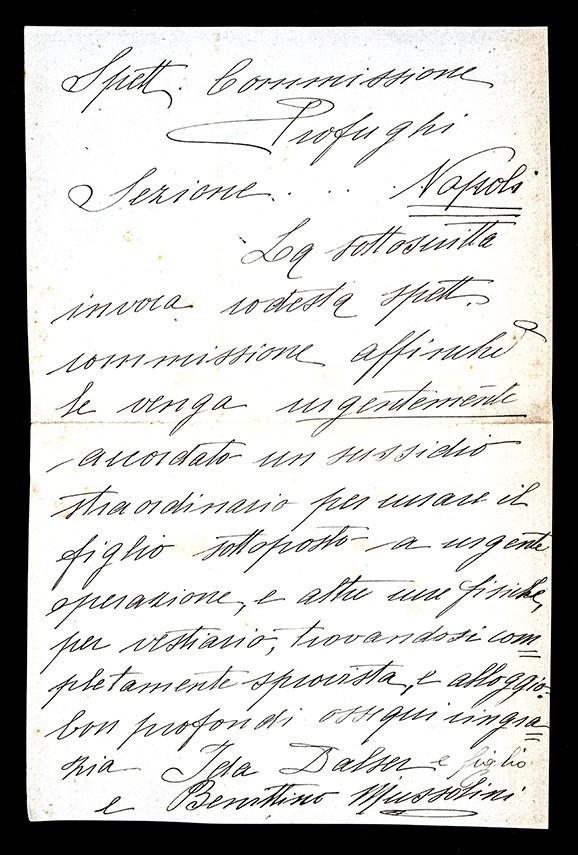 Spett. Commissione
Profughi
Sezione . . . Napoli
La sottoscritta
invoca codesta spett.
commissione affinché
le venga urgentemente
accordato un sussidio
straordinario per curare il
figlio sottoposto a urgente
operazione, e altre cure fisiche,
per vestiario, trovandosi com=
pletamente sprovvista, e alloggio.
Con profondi ossequi ringra=
zia Ida Dalser e figlio
e Benittino Mussolini